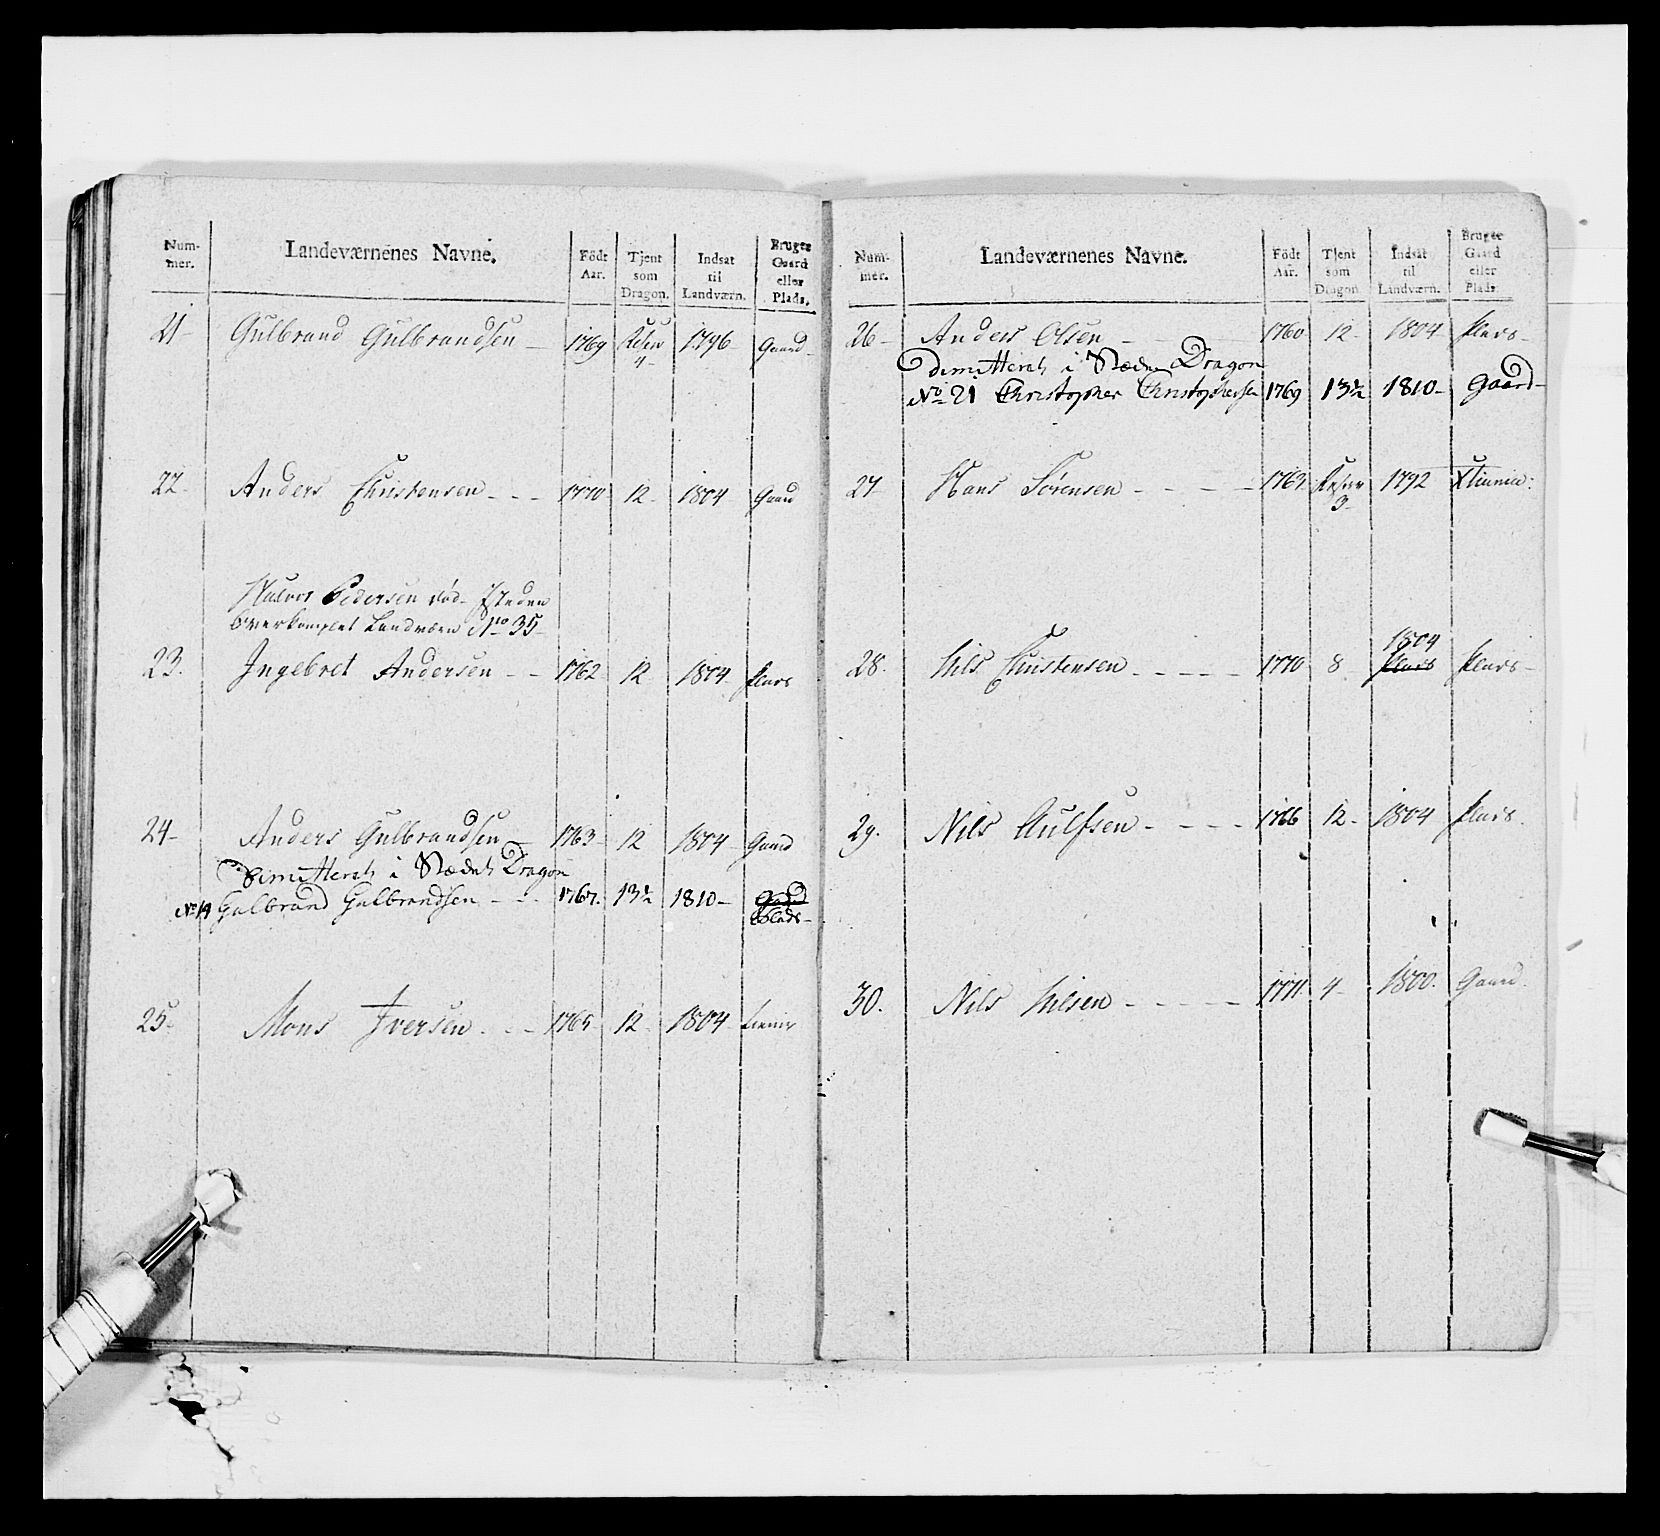 Num-
mer.
Landeværnenes Navne.
Födt
Aar.
Tjent
som
Dragon.
Indsat
til
Landværn.
Bruger
Gaard
eller
Plads.
21 Gulbrand Gulbrandsen 1769 Reserv 4 1796 Gaard
22 Anders Christensen 1770 12 1804 Gaard
Halvor Pedersen død Isteden
Overkomplet Landværn No 35
23. Ingebret Andersen 1762 12 1804 Plads
24 Anders Gulbrandsen 1763 12 1804 Gaard
Dimitteret i Stædet Dragon
No 19 Gulbrand Gulbrandsen 1767. 13½ 1810 Gaard
Plads
25. Mons Iversen 1765 12 1804
Num-
mer.
Landeværnenes Navne.
Födt
Aar.
Tjent
som
Dragon.
Indsat
til
Landværn.
Bruger
Gaard
eller
Plads.
26 Anders Olsen 1760 12 1804 Plads
Dimitteret i Stæden Dragon
No 21 Christopher Christophersen 1769 13½ 1810 Gaard
27 Hans Sörensen 1763 Reserv 3 1792
1804
28. Nils Christensen 1770 8 Plads Plads
29. Nils Aulfsen 1766 12 1804 Plads
30. Nils Nilsen 1771 4 1800. Gaard